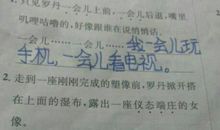 只见罗丹一会儿上前,一会儿后退,嘴里
叽哩咕噜的,好像跟谁在说悄悄话。
一会儿……一会儿……我一会儿玩
手机,一会儿看电视。
2.走到一座刚刚完成的塑像前,罗丹掀开搭
在上面的湿布,露出一座仪态端庄的女
像。